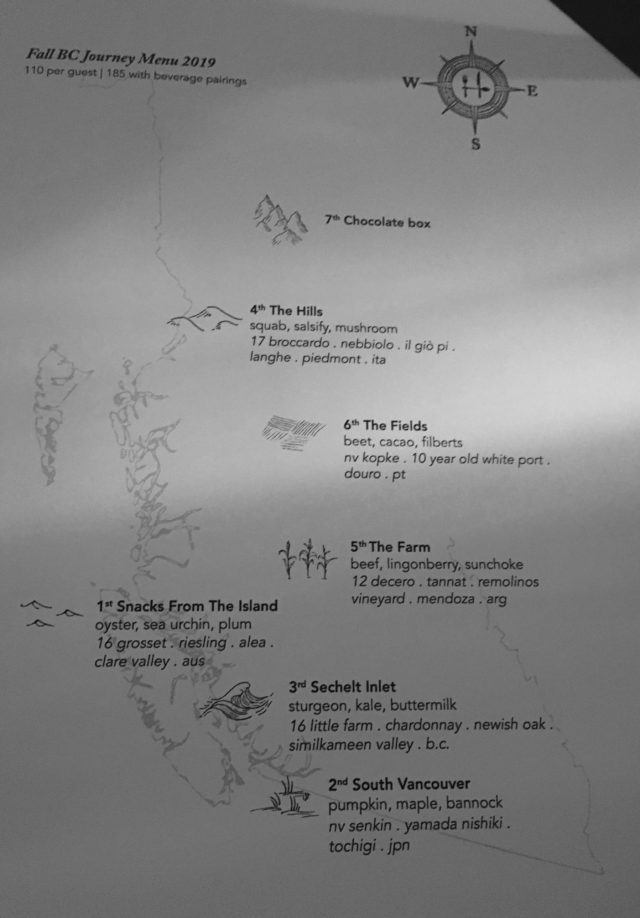 Fall BC Journey Menu 2019
110 per guest | 185 with beverage pairings
N
W
E
S
7th Chocolate box
4th The Hills
squab, salsify, mushroom
17 broccardo . nebbiolo . il giò pi .
langhe . piedmont . ita
6th The Fields
beet, cacao, filberts
nv kopke . 10 year old white port .
douro . pt
5th The Farm
beef, lingonberry, sunchoke
12 decero . tannat . remolinos
vineyard . mendoza . arg
1st Snacks From The Island
oyster, sea urchin, plum
16 grosset . riesling . alea .
clare valley . aus
3rd Sechelt Inlet
sturgeon, kale, buttermilk
16 little farm . chardonnay . newish oak .
similkameen valley . b.c.
2nd South Vancouver
pumpkin, maple, bannock
nv senkin . yamada nishiki .
tochigi . jpn